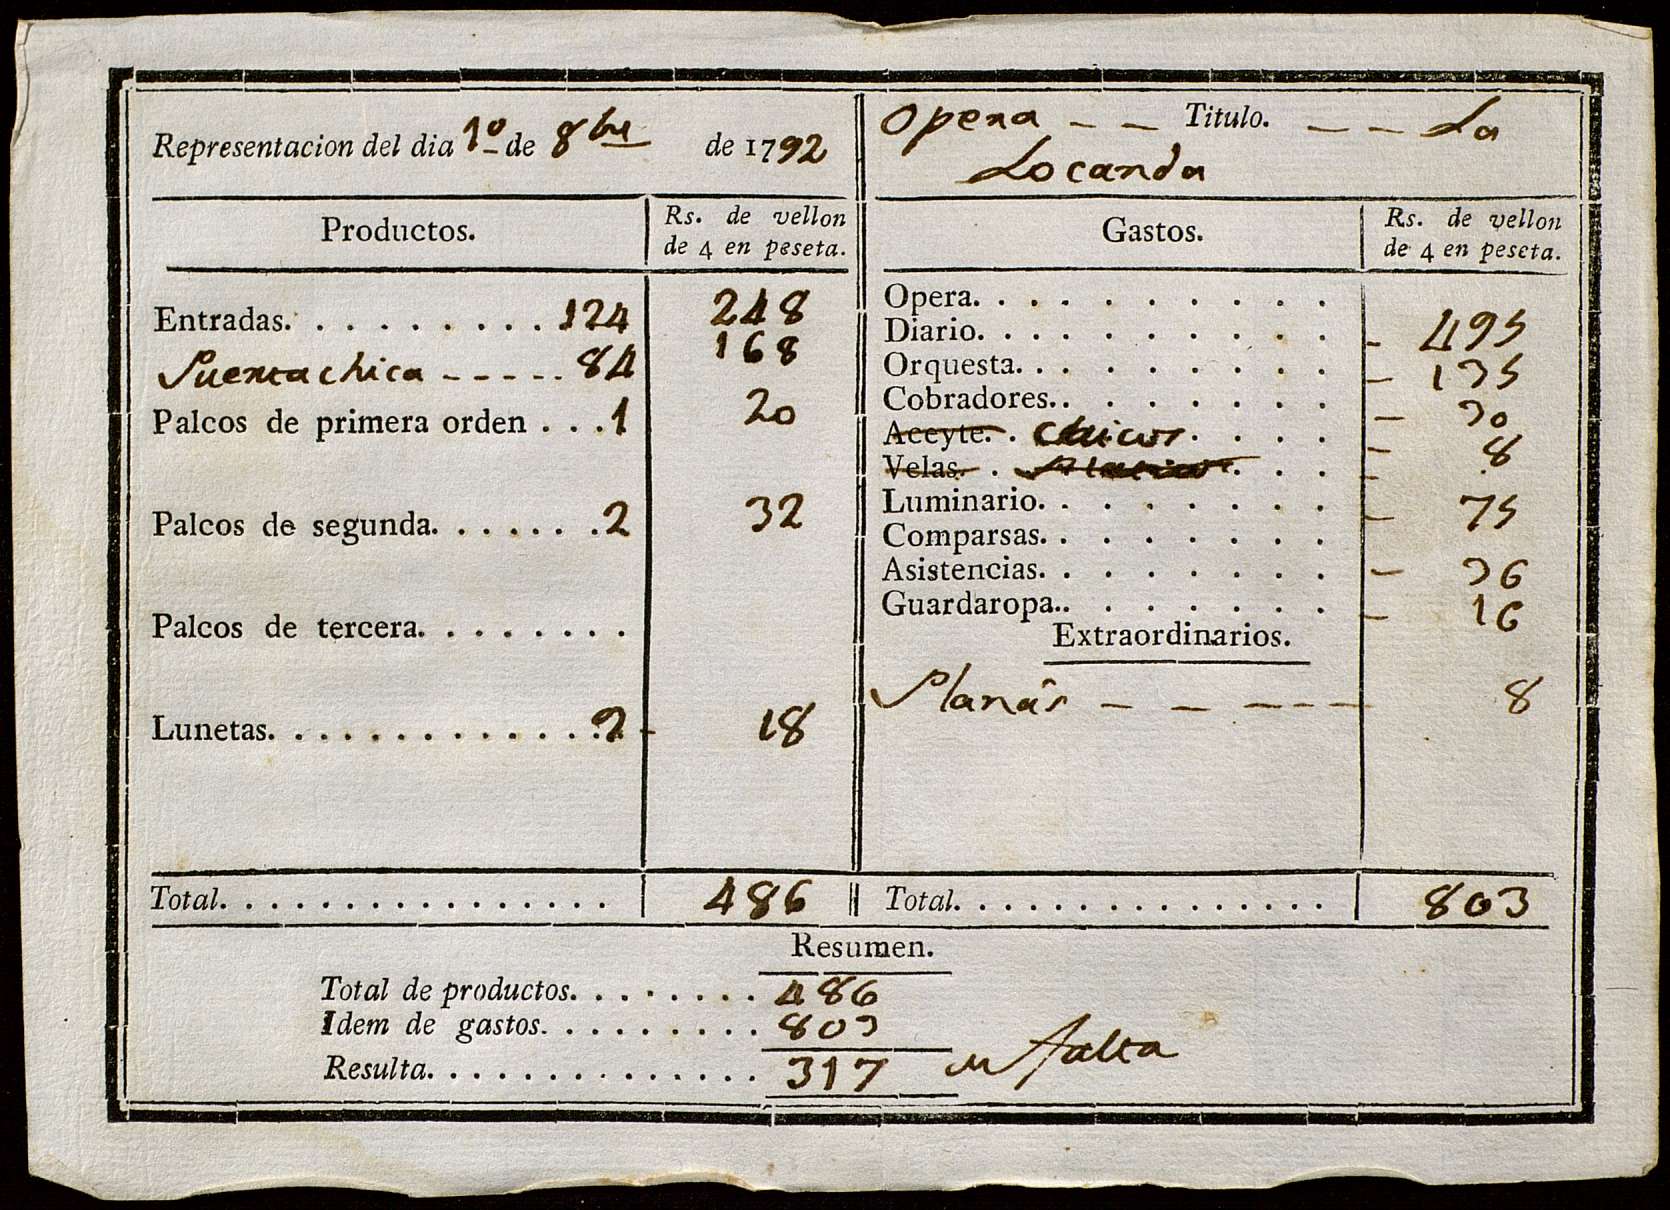 Representacion del dia 1º de 8bre de 1792
Opera - - Titulo. - - - La
Locanda
Productos. Rs. de vellon
de 4 en peseta.
Entradas. . . . . . . . . . 124 248
Puertachica - - - - - 84 168
Palcos de primera orden . . . 1 20
Palcos de segunda. . . . . . . 2 32
Palcos de tercera. . . . . . . .
Lunetas. . . . . . . . . . . . . . 9 - 18
Total. . . . . . . . . . . . . . . . 486
Gastos. Rs. de vellon
de 4 en peseta.
Opera. . . . . . . . . .
Diario. . . . . . . . . . - 495
Orquesta. . . . . . . . . - 135
Cobradores. . . . . . . . - 30
Aceyte. . Chicos. . . . - 8
Velas. . . . . -
Luminario. . . . . . . . - 75
Comparsas. . . . . . . .
Asistencias. . . . . . . . - 36
Guardaropa. . . . . . . . - 16
Extraordinarios.
Planas - - - - - 8
Total. . . . . . . . . . . . . . . 803
Resumen.
Total de productos. . . . . . . . 486
Idem de gastos. . . . . . . . . 803
Resulta. . . . . . . . . . . . . . 317 falta